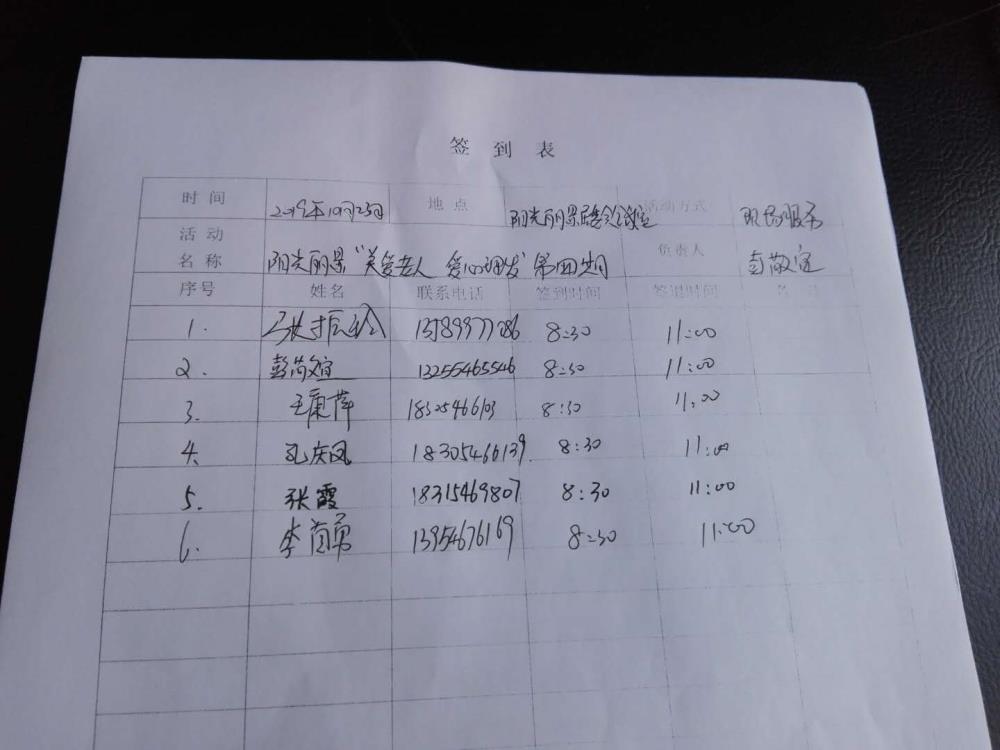 签到表
时间 2019年10月25日 地点 阳光丽景 活动方式 现场服务
活动名称 阳光丽景“关爱老人 爱心理发”第四期 负责人
序号 姓名 联系电话 签到时间 签退时间 备注
1. 8:30 11:00
2. 13255465546 8:30 11:00
3. 王康萍 8:30 11:00
4. 孔庆凤 18305466139 8:30 11:00
5. 张霞 18315469807 8:30 11:00
6. 13954676169 8:30 11:00